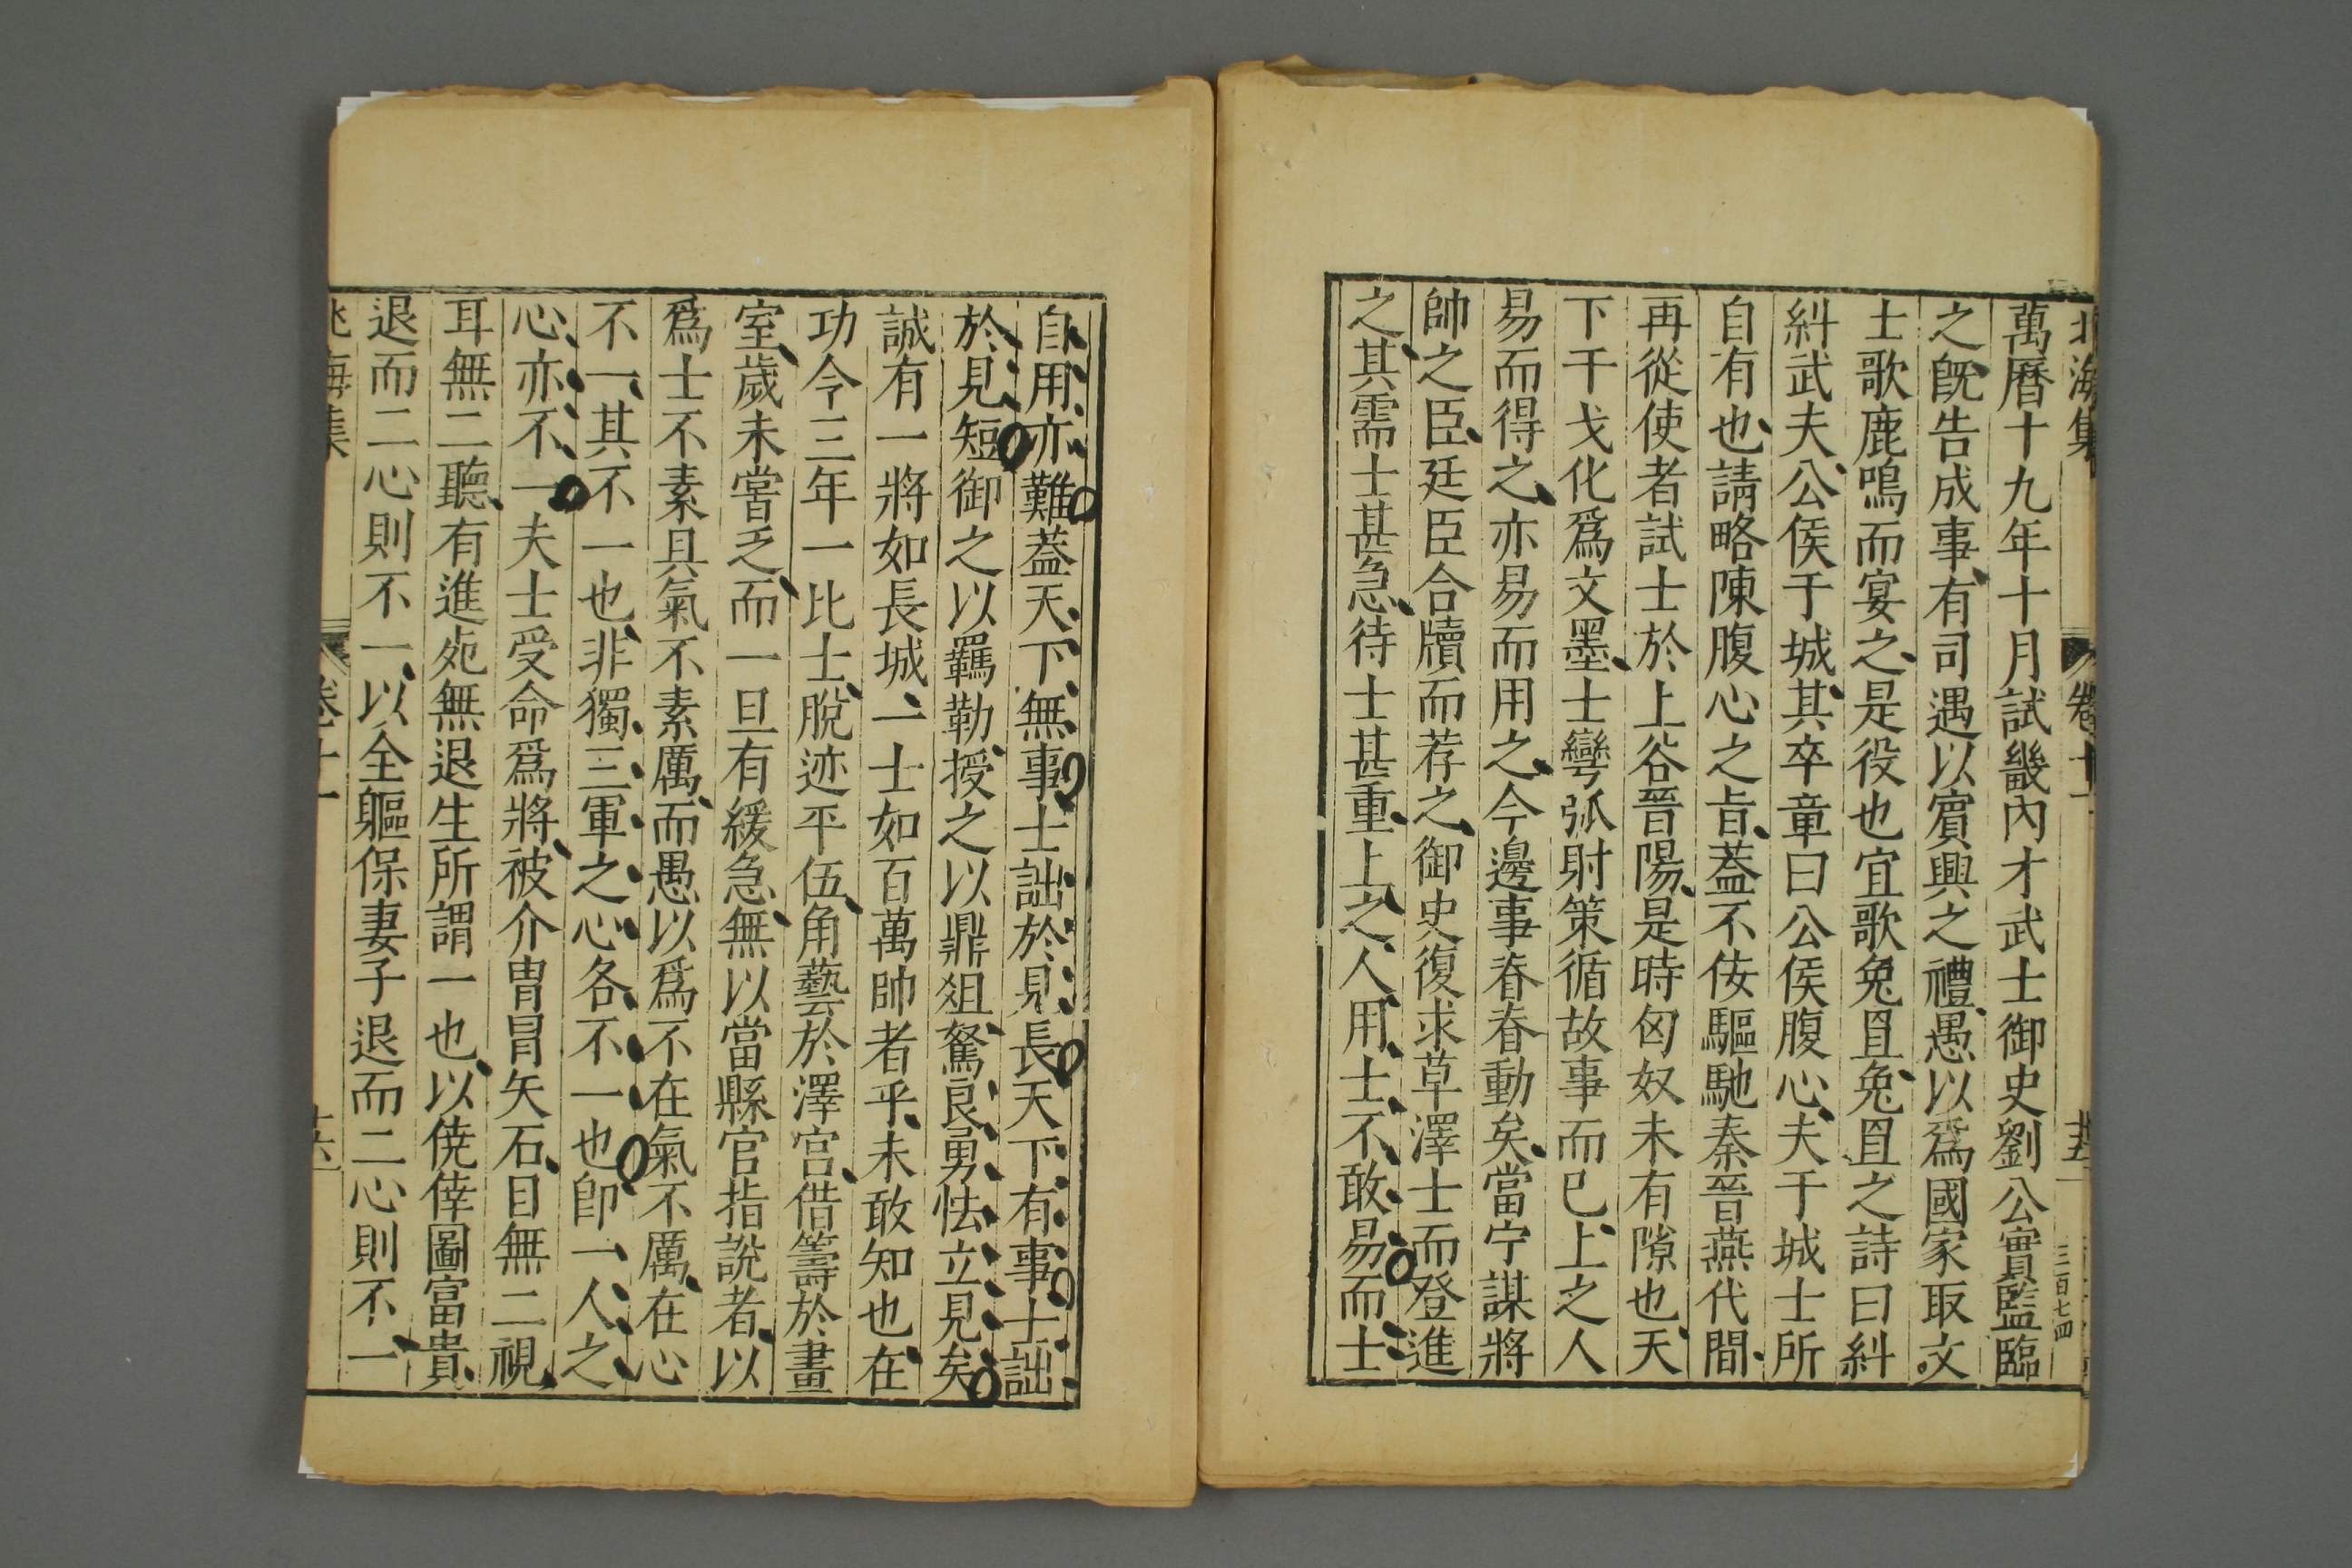 北海集 卷十一 廿五 三百七四
萬曆十九年十月試畿內才武士御史劉公實監臨
之旣告成事有司遇以賔興之禮愚以爲國家取文
士歌鹿鳴而宴之是役也宜歌兔罝兔罝之詩曰糾
糾武夫公侯于城其卒章曰公侯腹心夫于城士所
自有也請略陳腹心之旨蓋不佞驅馳秦晉燕代間
再從使者試士於上谷晉陽是時匈奴未有隙也天
下干戈化爲文墨士彎弧射策循故事而已上之人
易而得之亦易而用之今邊事舂舂動矣當宁謀將
帥之臣廷臣合牘而荐之御史復求草澤士而登進
之其需士甚急待士甚重上之人用士不敢易而士
自用亦難蓋天下無事士詘於見長天下有事士詘
於見短御之以羈勒授之以鼎俎駑良勇怯立見矣
誠有一將如長城一士如百萬帥者乎未敢知也在
功令三年一比士脫迹平伍角藝於澤宮借籌於畫
室歲未嘗乏而一旦有緩急無以當縣官指說者以
爲士不素具氣不素厲而愚以爲不在氣不厲在心
不一其不一也非獨三軍之心各不一也卽一人之
心亦不一夫士受命爲將被介冑冒矢石目無二視
耳無二聽有進死無退生所謂一也以僥倖圖富貴
退而二心則不一以全軀保妻子退而二心則不一
北海集 卷十一 廿六